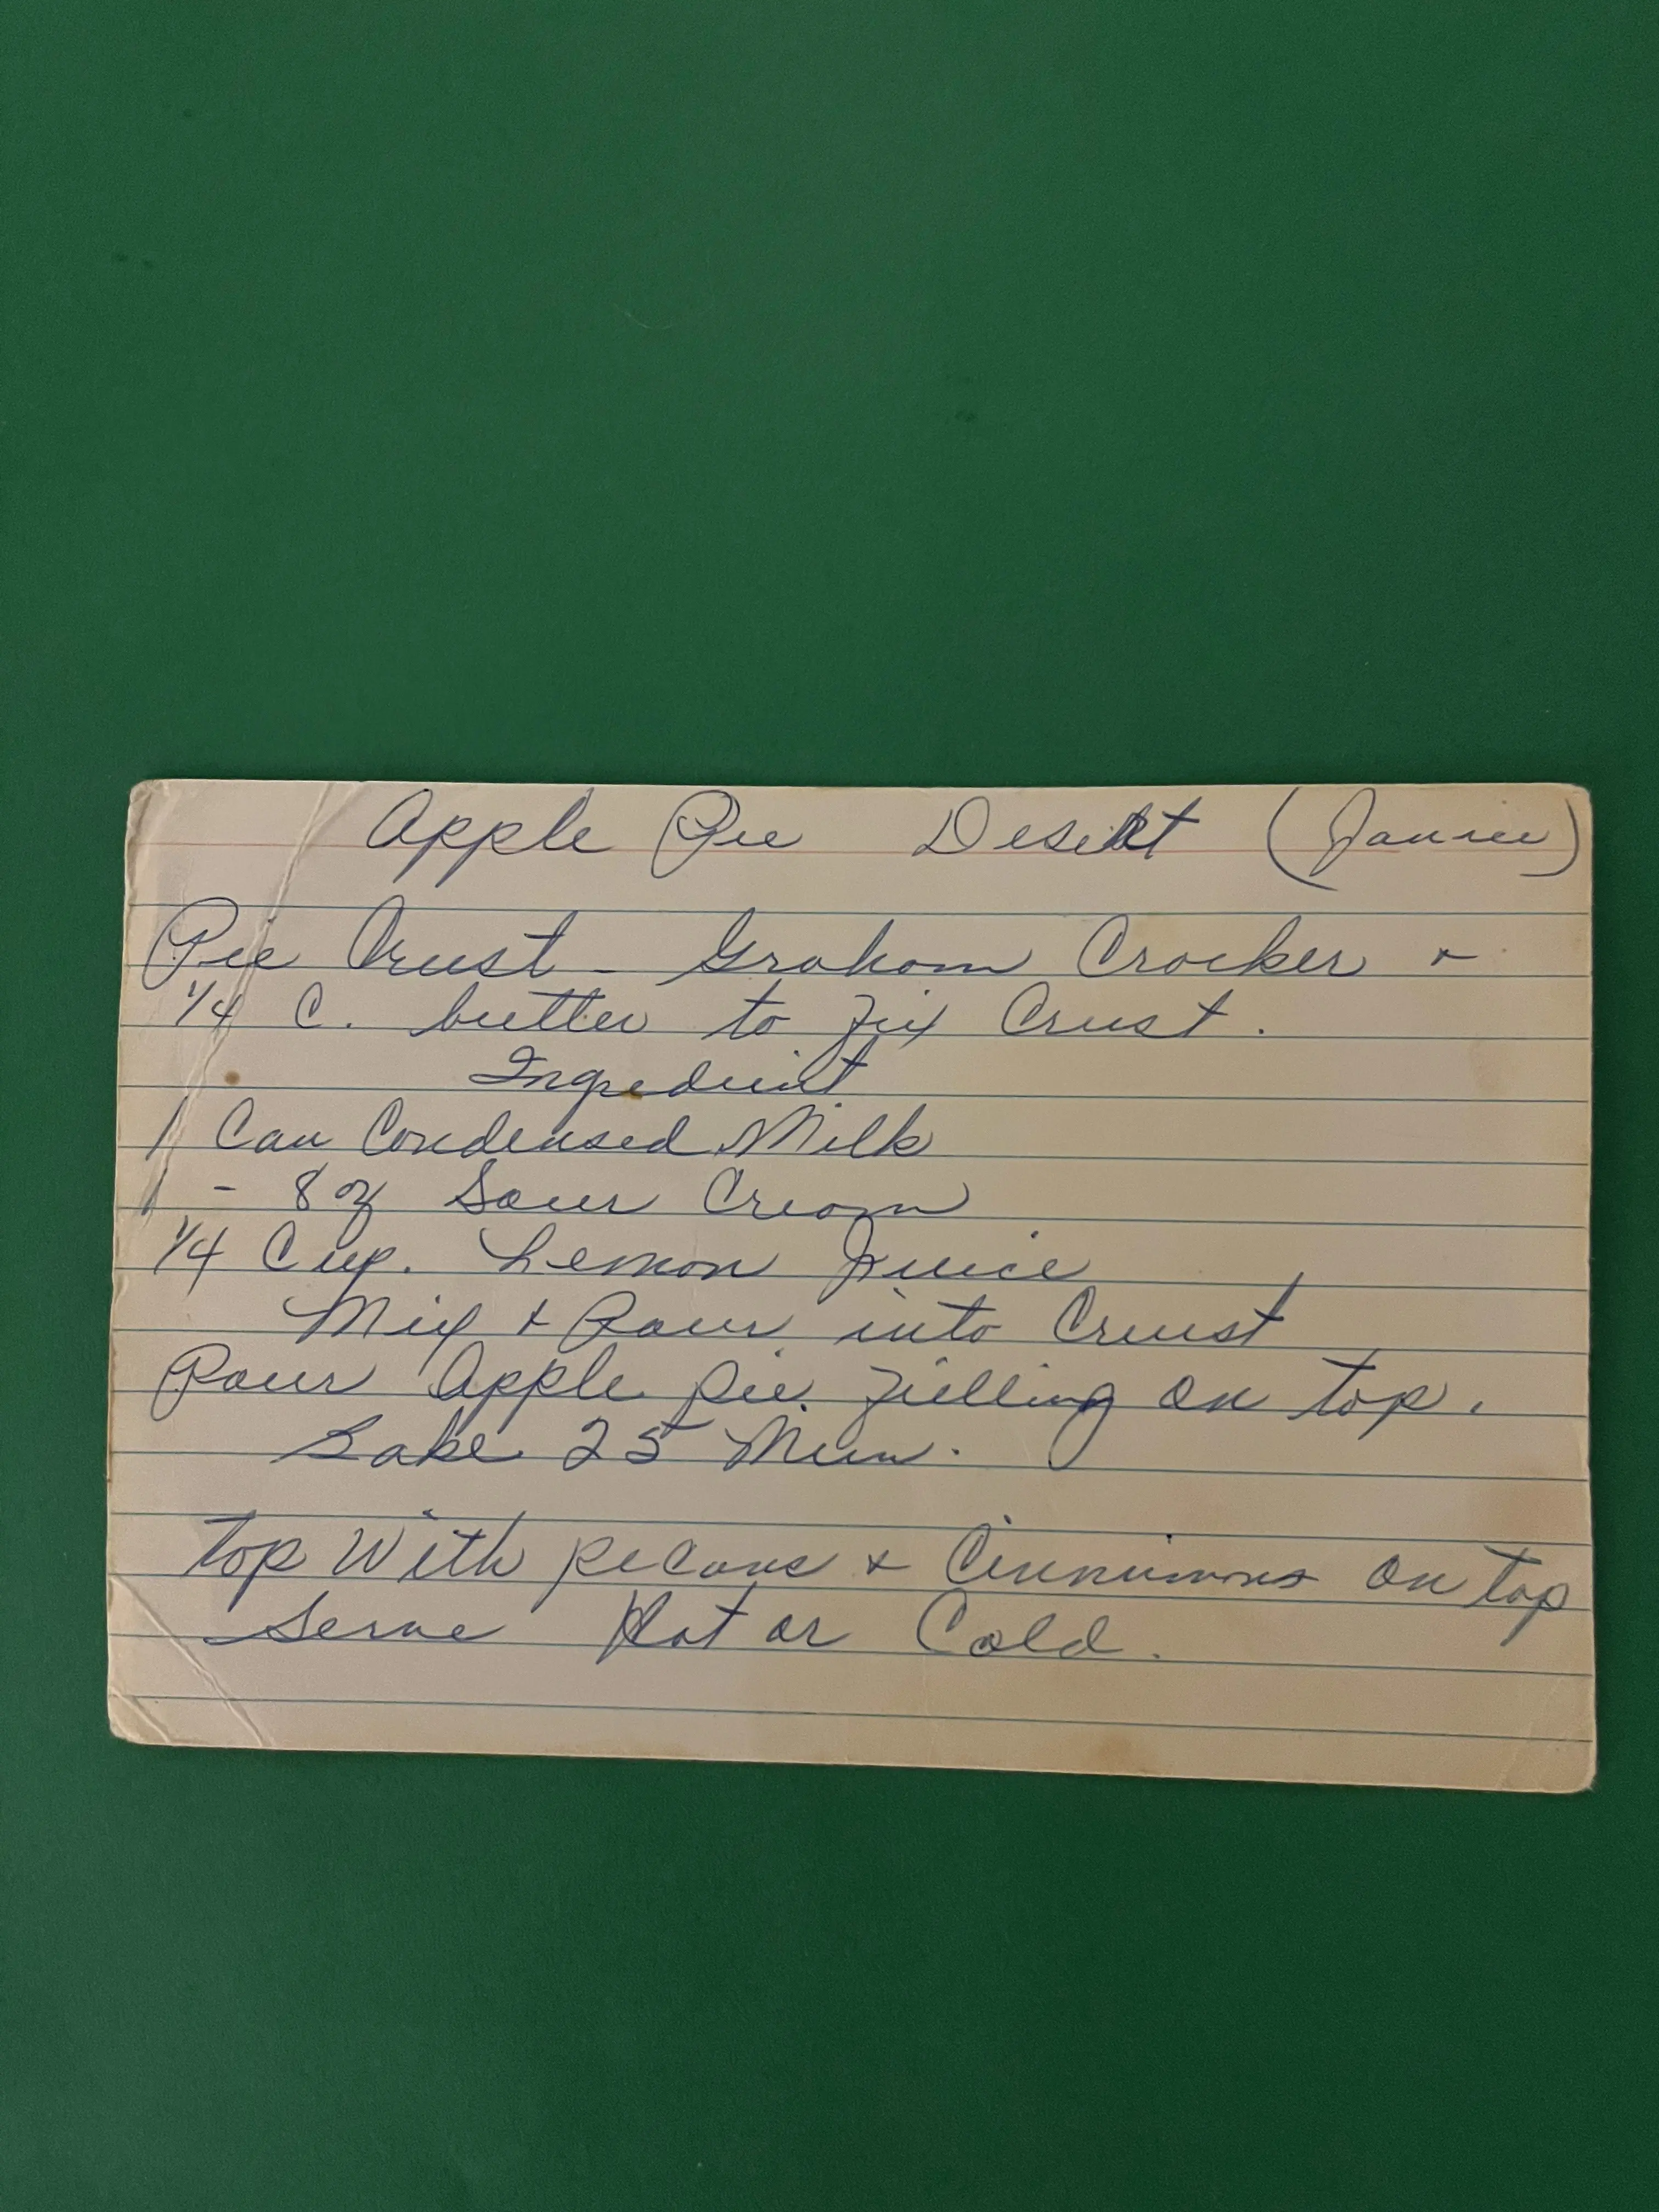 Apple Pie Desert (Janice)
Pie Crust - Graham Cracker +
1/4 C. butter to fix Crust.
Ingredient
1 Can Condensed Milk
1 - 8 oz Sour Cream
1/4 Cup. Lemon Juice
Mix + Pour into Crust
Pour Apple pie filling on top.
Bake 25 Min.
top With pecans + Cinnimons on top
Serve Hot or Cold.